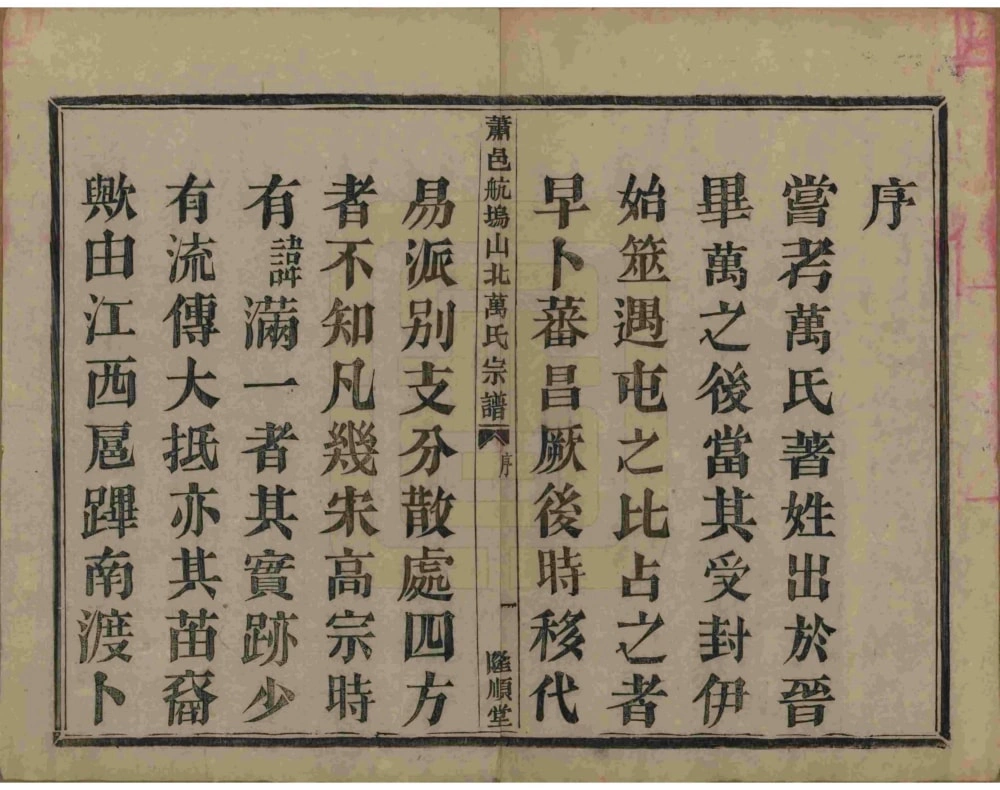 序
嘗考萬氏著姓出於晉
畢萬之後當其受封伊
始筮遇屯之比占之者
早卜蕃昌厥後時移代
蕭邑航塢山北萬氏宗譜 序 一 隆順堂
易派別支分散處四方
者不知凡幾宋高宗時
有諱滿一者其實跡少
有流傳大抵亦其苗裔
歟由江西扈蹕南渡卜